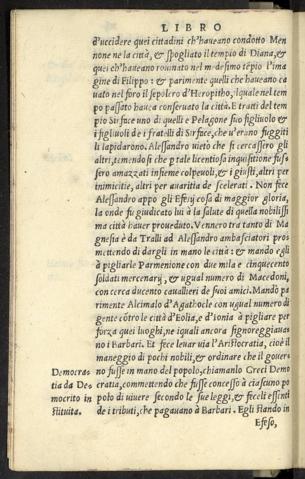 LIBRO
d'uccidere quei cittadini ch'haueano condotto Men
none ne la città, & spogliato il tempio di Diana, &
quei ch'haueano rouinato nel medesimo tēpio l'ima
gine di Filippo: & parimente quelli che haueano ca
uato nel foro il sepolcro d'Heropitho, ilquale nel tem
po passato hauea conseruato la città. E tratti del tem
pio Sirface uno di quelli e Pelagone suo figliuolo & e
i figliuoli de i fratelli di Sirface, che u'erano fuggiti
li lapidarono. Alessandro uietò che si cercassero gli
altri, temendosi che p tale licentiosa inquisitione fus-
sero amazzati insieme colpeuoli, & i giusti, altri per
inimicitie, altri per auaritia de scelerati. Non fece
Alessandro appo gli Efesy cosa di maggior gloria,
la onde fu giudicato lui à la salute di quella nobilissi
ma città hauer proueduto. Vennero tra tanto di Ma
gnesia è da Tralli ad Alessandro ambasciatori pro
mettendo di dargli in mano le città: & mando egli
à pigliarle Parmenione con due mila e cinquecento
soldati mercenarij, & ugual numero di Macedoni,
con cerca ducento cauallieri de suoi amici. Mandò pa
rimente Alcimalo d'Agathocle con ugual numero di
gente cōtro le città d'Eolia, e d'Ionia à pigliare per
forza quei luoghi, ne iquali ancora signoreggiaua-
no i Barbari. Et fece leuar uia l'Aristocratia, cioè il
maneggio di pochi nobili, & ordinare che il gouer-
Democra- no fusse in mano del popolo, chiamanlo Greci Demo
tia da De- cratia, commettendo che fusse concesso à ciascuno po
mocrito in polo di uiuere secondo le sue leggi, & feceli essenti
stituita. de i tributi, che pagauano à Barbari. Egli stando in
Efeso,